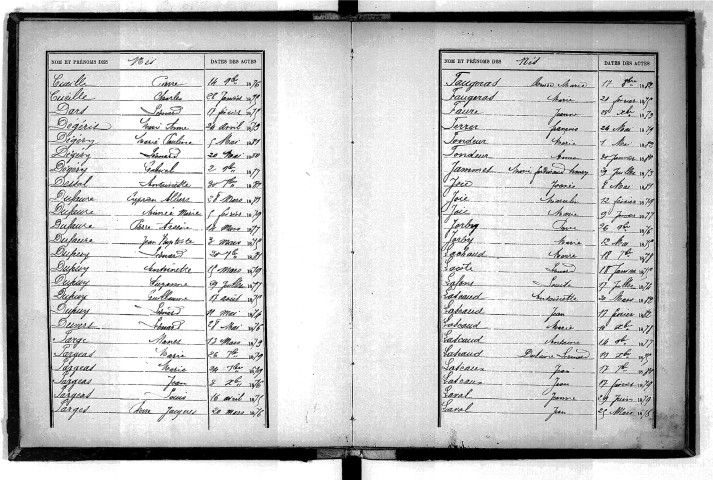 NOM ET PRÉNOMS DES Nés DATES DES ACTES
Cueille Pierre 14 9bre 1876
Cueille Charles 28 Janvier 1879
Dars Léonard 17 février 1875
Dégéris Marie Anne 24 avril 1873
Dégéry Marie Pauline 5 Mai 1881
Dégéry Léonard 20 Mai 1880
Dégéry Gabriel 2 9bre 1877
Destal Antoinette 30 7bre 1882
Dufaure Cyprien Albert 28 Mars 1879
Dufaure Aimée Marie 5 février 1879
Dufaure Pierre 14 Mars 1877
Dufaure Jean Baptiste 3 mars 1875
Dupuy Léonard 20 7bre 1881
Dupuy Antoinette 15 Mars 1879
Dupuy Suzanne 29 Juillet 1877
Dupuy Guillaume 17 août 1875
Dupuy Léonard 11 mai 1874
Duvert Léonard 28 Mai 1876
Farge Marie 17 Mars 1873
Fargeas Marie 26 7bre 1879
Fargeas Marie 24 1879
Fargeas Jean 8 Xbre 1876
Fargeas Louis 16 avril 1875
Farges Pierre Jacques 20 mars 1876
NOM ET PRÉNOMS DES Nés DATES DES ACTES
Faugeras Marie 17 8bre 1882
Faugeras Marie 21 février 1875
Faure Jeanne 25 Xbre 1873
Ferrer François 24 Mai 1879
Fondeur Marie 1 Mai 1883
Fondeur Anna 30 Janvier 1881
Jammet Marie 29 Juillet 1873
Joie 8 Mai 1881
Joie 12 février 1879
Joie Marie 9 1877
Jorby Pierre 26 9bre 1876
Jorby Marie 12 Mai 1875
Lachaud Marie 18 7bre 1878
Lacôte Léonard 18 Janvier 1875
Lafont Louise 17 Juillet 1876
Lascaud Antoinette 20 Mars 1882
Lascaud Jean 17 février 1882
Lascaud Marie 11 Xbre 1878
Lascaud Antoine 14 9bre 1877
Lascaud Léonard 19 Xbre 1875
Lascaux Jean 17 7bre 1881
Lascaux Jean 17 février 1879
Laval Jeanne 29 Juin 1879
Laval Jean 25 Mars 1876